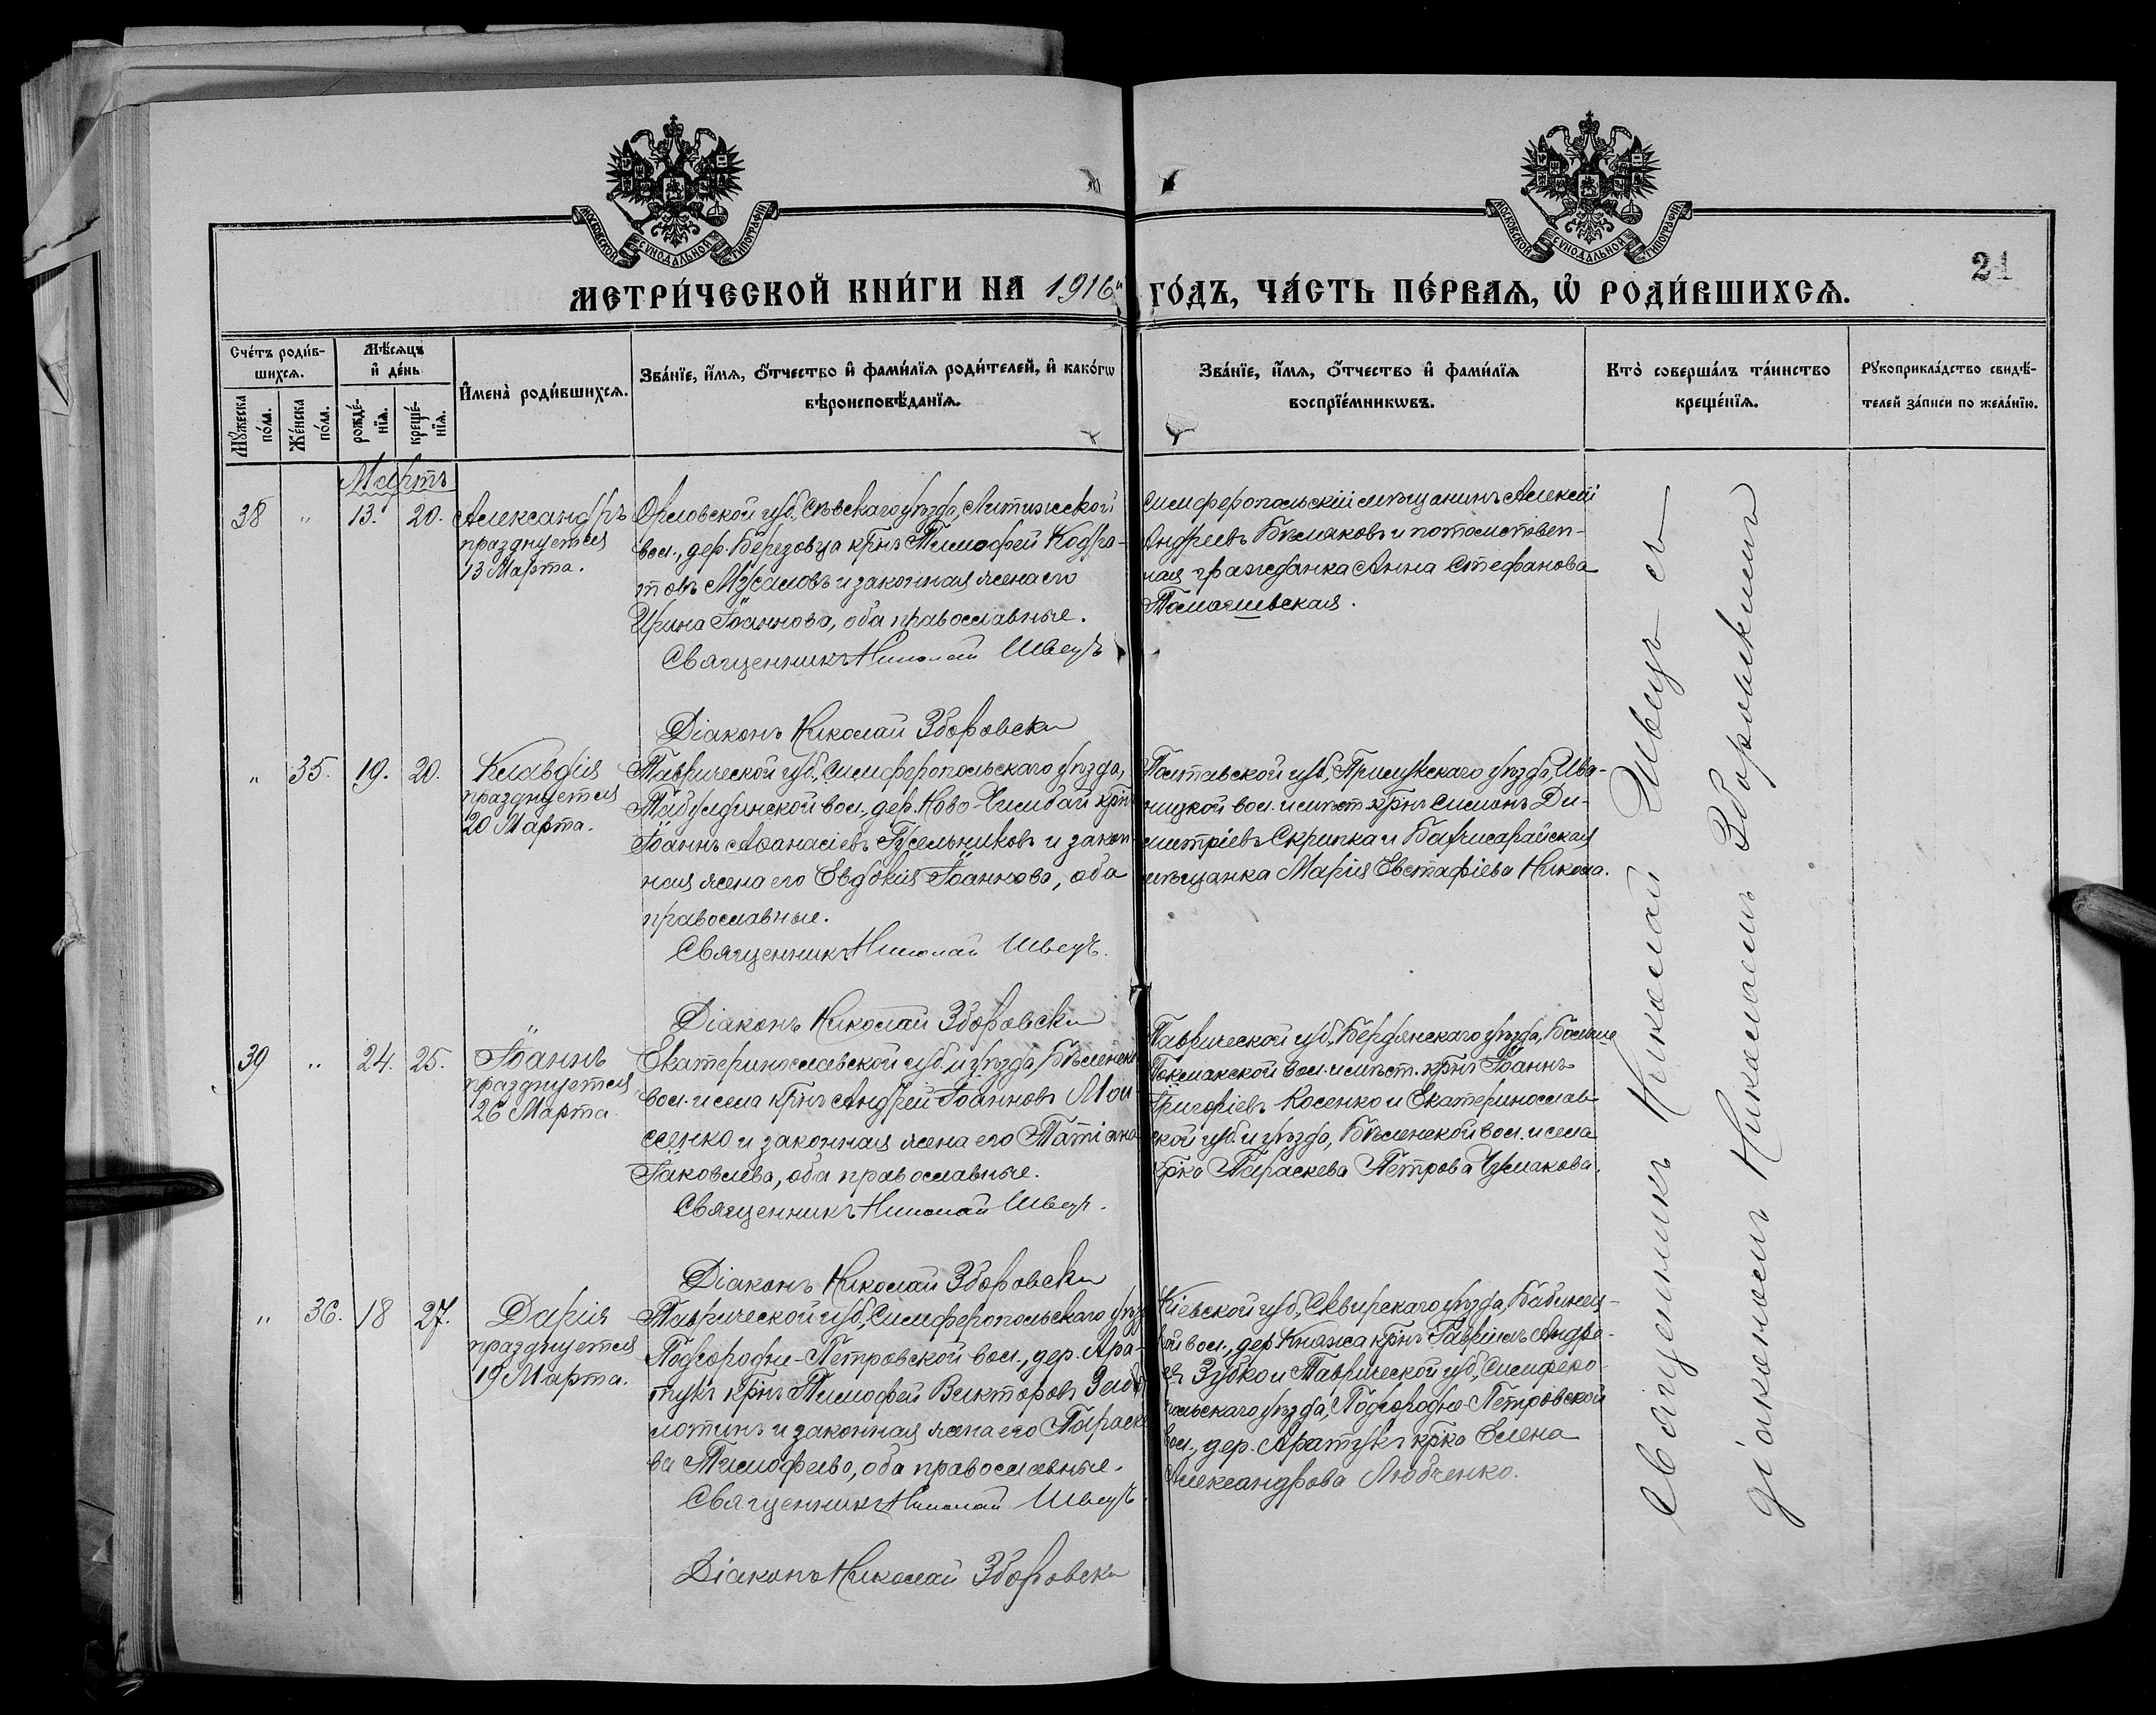 МОСКОВСКОЙ СѴНОДАЛЬНОЙ ТИПОГРАФІИ
МОСКОВСКОЙ СѴНОДАЛЬНОЙ ТИПОГРАФІИ
21
МЕТРИ́ЧЕСКОЙ КНИ́ГИ НА 1916й ГО́ДЪ, ЧА́СТЬ ПЕ́РВАѦ, Ѡ҆ РОДИ́ВШИХСѦ.
Сче́тъ роди́в-
шихсѧ.
Мꙋ́жеска по́ла.
Же́нска по́ла.
Мѣ́сѧцъ
и҆ де́нь
рожде́-
нїѧ.
креще́-
нїѧ.
И҆мена̀ роди́вшихсѧ.
Зва́нїе, и҆́мѧ, ѻ҆́тчество и҆ фами́лїѧ роди́телей, и҆ како́гѡ
вѣроисповѣ́данїѧ.
Зва́нїе, и҆́мѧ, ѻ҆́тчество и҆ фами́лїѧ
воспрїе́мникѡвъ.
Кто̀ соверша́лъ та́инство
креще́нїѧ.
Рꙋкоприкла́дство свидѣ́-
телей за́писи по жела́нїю.
Мартъ
38 " 13. 20. Александръ
празднуется
13 Марта.
Орловской губ., Сѣвскаго уѣзда, Литижской
вол., дер. Березовца крнъ Тимофей Кодра-
товъ и законная жена его
Ирина Іоаннова, оба православные.
Священникъ Николай Швецъ
Діаконъ Николай Зборовски
Симферопольскій мѣщанинъ Алексѣй
Андреевъ Бѣлмаковъ и потомствен-
ная гражданка Анна Стефанова
" 35. 19. 20. Клавдія
празднуется
20 Марта.
Таврической губ., Симферопольскаго уѣзда,
Табулдинской вол., дер. Ново-Чимбай крнъ
Іоаннъ Аѳанасіевъ Гусельниковъ и закон-
ная жена его Евдокія Іоаннова, оба
православные.
Священникъ Николай Швецъ.
Діаконъ Николай Зборовски
Полтавской губ., Прилукскаго уѣзда, Ива-
ницкой вол. и мѣст. крнъ Симонъ Ди-
митріевъ Скрипка и Бахчисарайская
мѣщанка Марія Евстафіева Никова.
39 " 24. 25. Іоаннъ
празднуется
26 Марта.
Екатеринославской губ. и уѣзда, Бѣленск.
вол. и села крнъ Андрей Іоанновъ Мои-
сеенко и законная жена его Татіана
Іаковлева, оба православные.
Священникъ Николай Швецъ.
Діаконъ Николай Зборовски
Таврической губ., Бердянскаго уѣзда, Больше
Токмакской вол. и мѣст. крнъ Іоаннъ
Григоріевъ Косенко и Екатеринослав-
ской губ. и уѣзда, Бѣленской вол. и села
крка Параскева Петрова Чумакова.
" 36. 18 27. Дарія
празднуется
19 Марта.
Таврической губ., Симферопольскаго уѣзд.
Подгородне-Петровской вол., дер. Ара-
тукъ крнъ Тимофей Викторовъ
и законная жена его Параске-
ва Тимофеева, оба православные.
Священникъ Николай Швецъ
Діаконъ Николай Зборовски
Кіевской губ., Сквирскаго уѣзда,
вол., дер. Княжа крнъ Гавріилъ Андре-
евъ Зубко и Таврической губ., Симферо-
польскаго уѣзда, Подгородне-Петровской
вол., дер. Аратукъ крка Елена
Александрова Любченко.
Священникъ Николай Швецъ съ
діакономъ Николаемъ Зборовскимъ